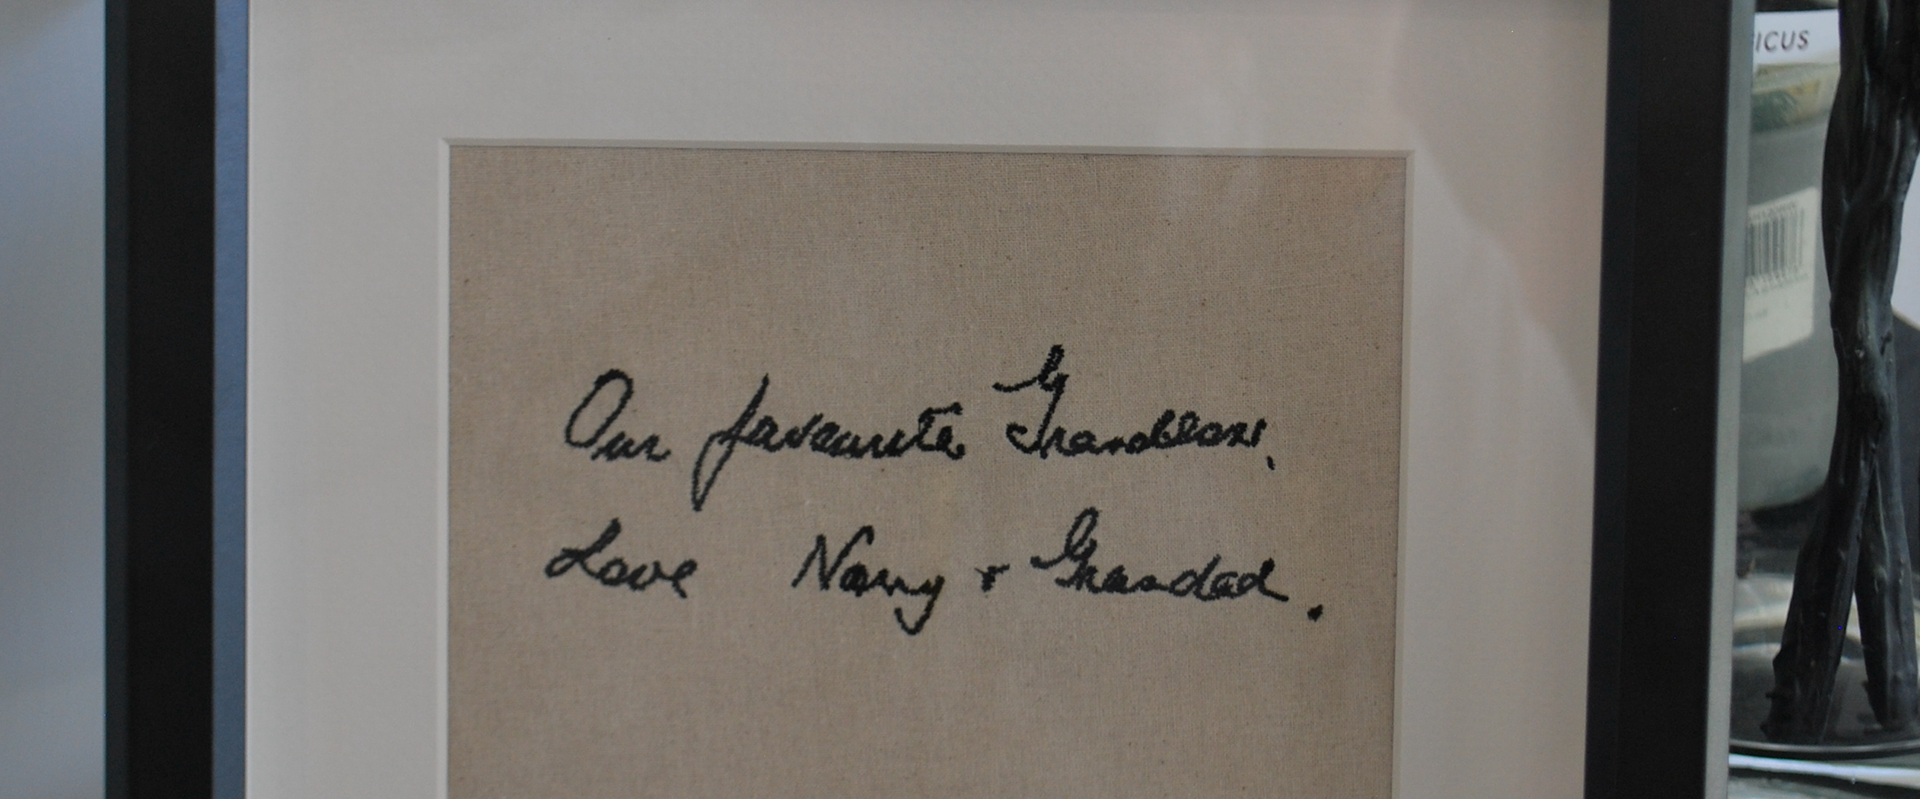 Our favourite Grandson,
Love Nanny + Grandad.
ICUS